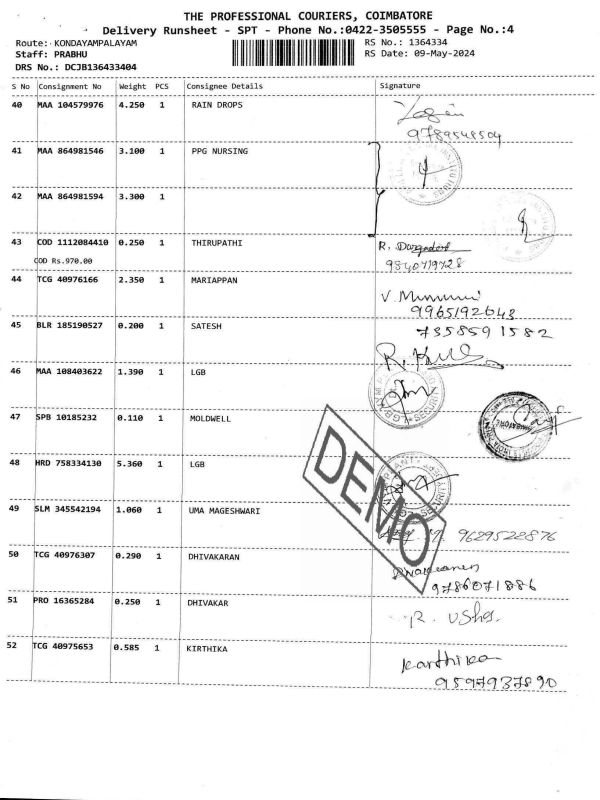 THE PROFESSIONAL COURIERS, COIMBATORE
Delivery Runsheet - SPT - Phone No.:0422-3505555 - Page No.:4
Route: KONDAYAMPALAYAM RS No.: 1364334
Staff: PRABHU RS Date: 09-May-2024
DRS No.: DCJB136433404
S No Consignment No Weight PCS Consignee Details Signature
40 MAA 104579976 4.250 1 RAIN DROPS
41 MAA 864981546 3.100 1 PPG NURSING
42 MAA 864981594 3.300 1
43 COD 1112084410 0.250 1 THIRUPATHI R.
COD Rs.970.00 9840719728
44 TCG 40976166 2.350 1 MARIAPPAN
9965192643
45 BLR 185190527 0.200 1 SATESH 7358591582
46 MAA 108403622 1.390 1 LGB
47 SPB 10185232 0.110 1 MOLDWELL
48 HRD 758334130 5.360 1 LGB
DEMO
49 SLM 345542194 1.060 1 UMA MAGESHWARI 9629522876
50 TCG 40976307 0.290 1 DHIVAKARAN
9786071886
51 PRO 16365284 0.250 1 DHIVAKAR R. Usha.
52 TCG 40975653 0.585 1 KIRTHIKA Karthika
9597937890